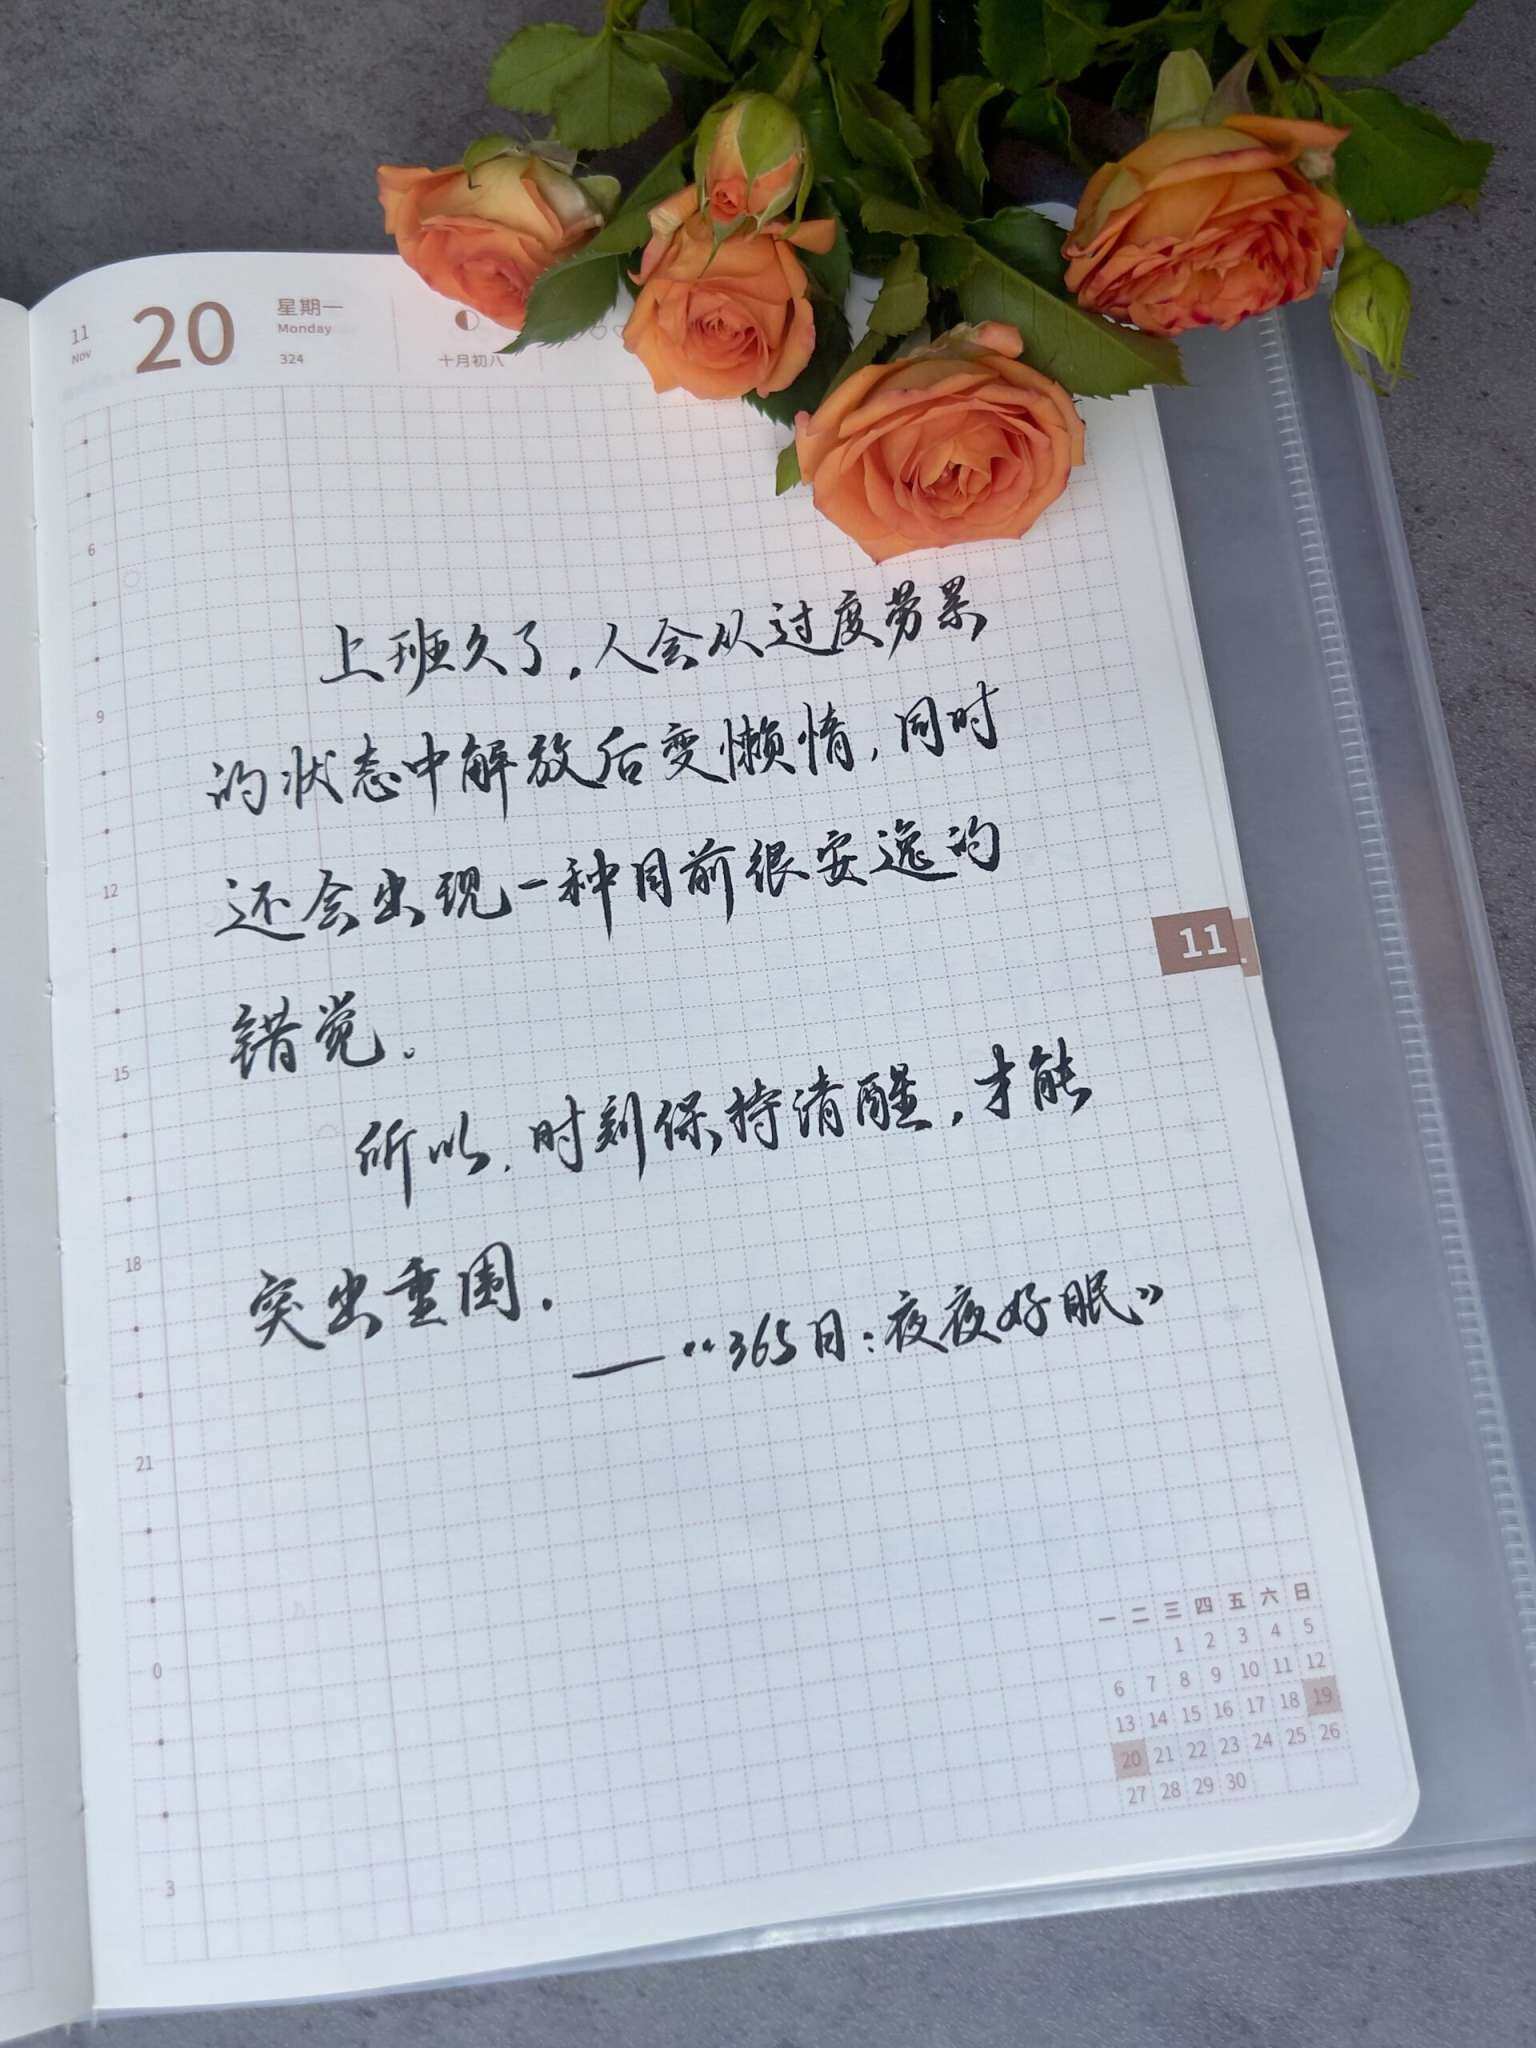 11
Nov
20
星期一
Monday
324
十月初八
6
9
12
15
18
21
0
3
上班久了，人会从过度劳累
的状态中解放后变懒惰，同时
还会出现一种目前很安逸的
错觉。
所以，时刻保持清醒，才能
突出重围.
——“365日：夜夜好眠》
11
一 二 三 四 五 六 日
1 2 3 4 5
6 7 8 9 10 11 12
13 14 15 16 17 18 19
20 21 22 23 24 25 26
27 28 29 30